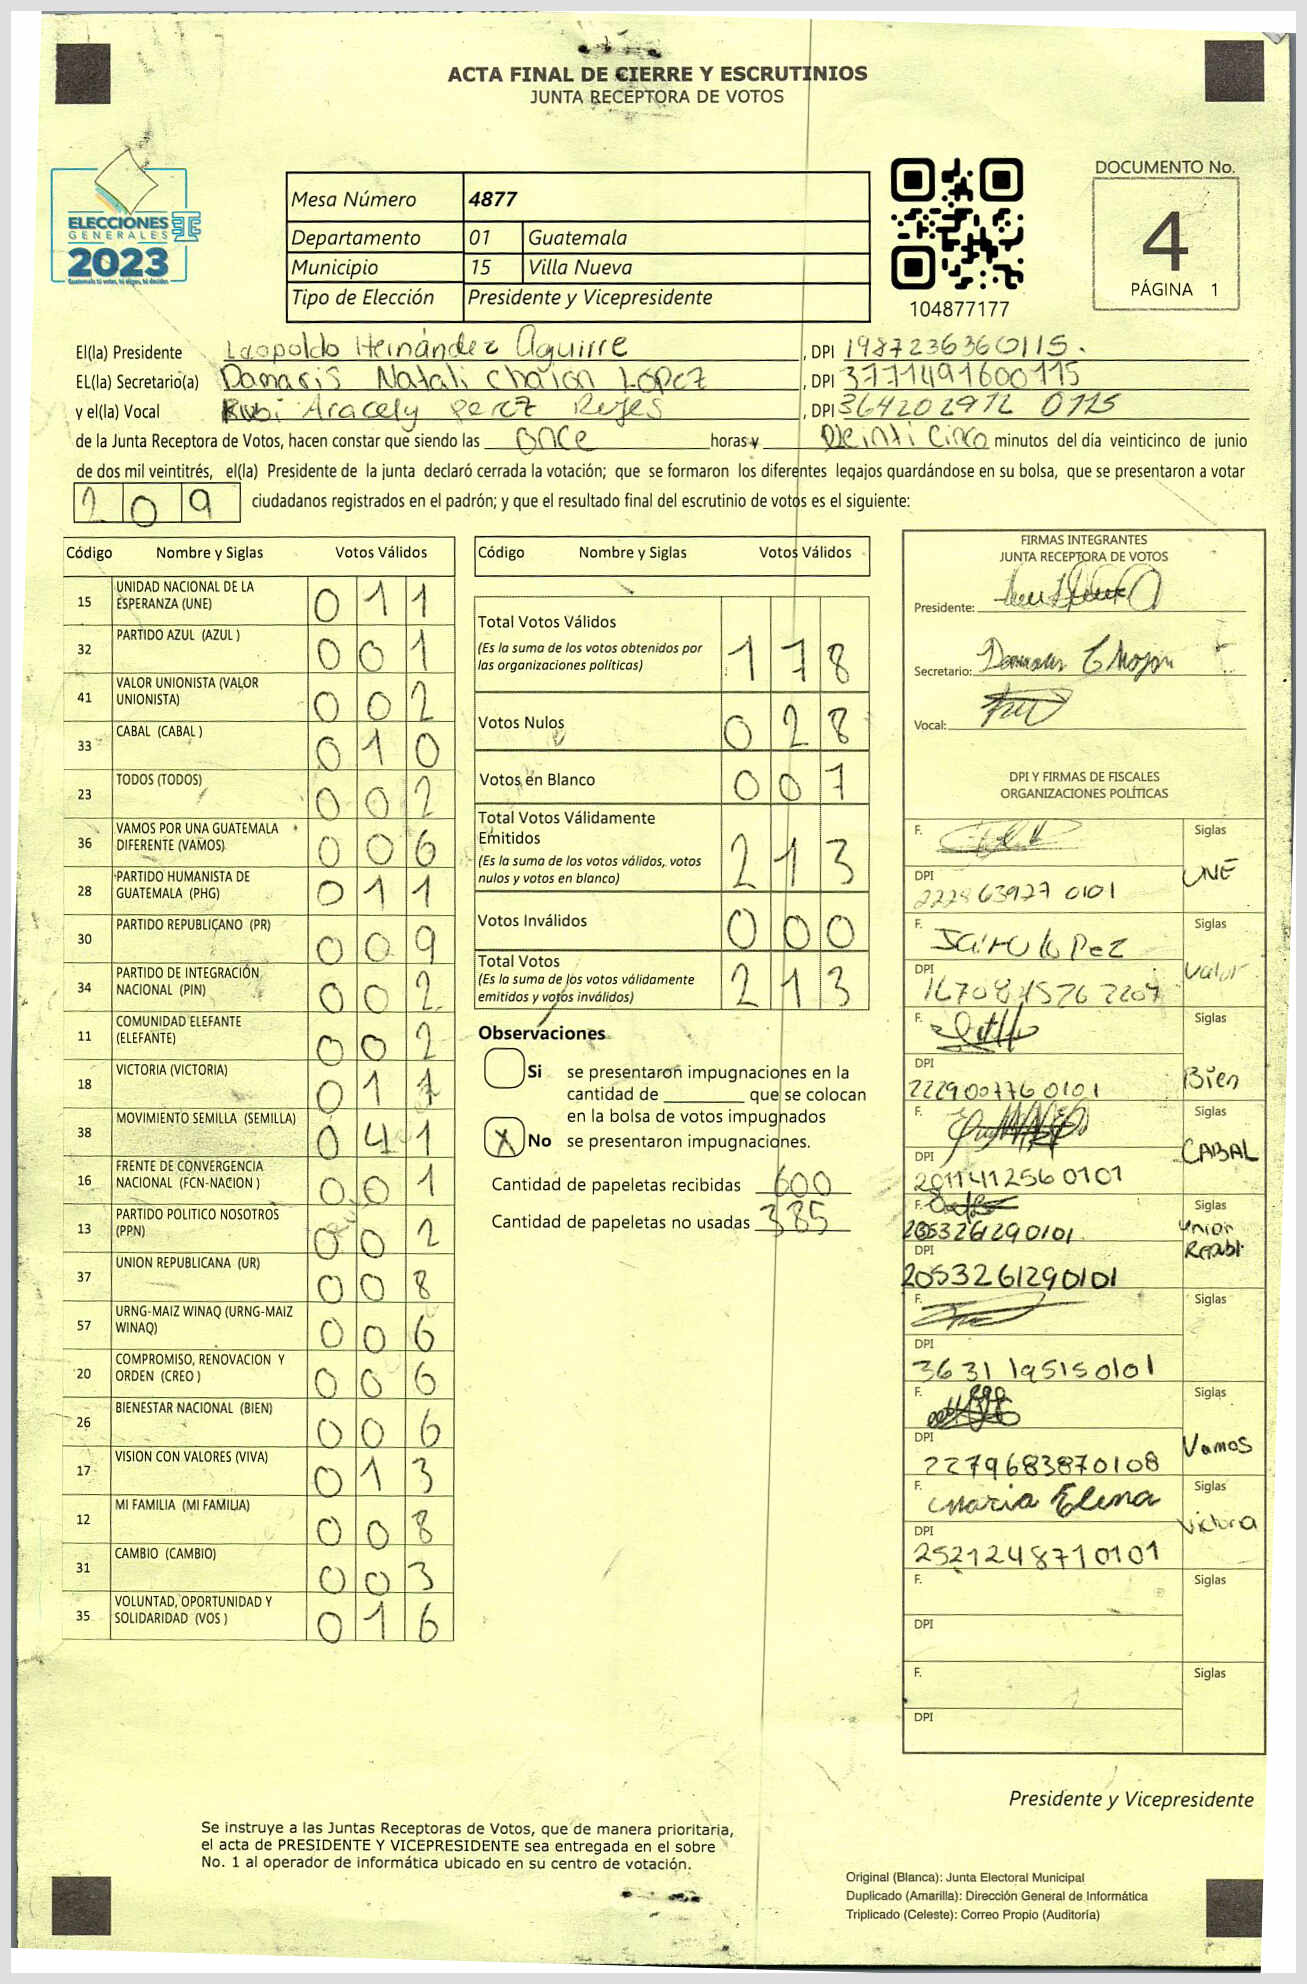 ACTA FINAL DE CIERRE Y ESCRUTINIOS
JUNTA RECEPTORA DE VOTOS
ELECCIONES
GENERALES
2023
Guatemala tú votas, tú eliges, tú decides
Mesa Número 4877
Departamento 01 Guatemala
Municipio 15 Villa Nueva
Tipo de Elección Presidente y Vicepresidente
104877177
DOCUMENTO No.
4
PÁGINA 1
El(la) Presidente Leopoldo Hernández Aguirre, DPI 1987236360115.
EL(la) Secretario(a) Damaris Natali Chajon López, DPI 3771491600115
y el(la) Vocal Rubi Aracely Perez Reyes, DPI 364202972 0115
de la Junta Receptora de Votos, hacen constar que siendo las once horas y Veinti Cinco minutos del día veinticinco de junio
de dos mil veintitrés, el(la) Presidente de la junta declaró cerrada la votación; que se formaron los diferentes legajos quardándose en su bolsa, que se presentaron a votar
209 ciudadanos registrados en el padrón; y que el resultado final del escrutinio de votos es el siguiente:
Código Nombre y Siglas Votos Válidos
15 UNIDAD NACIONAL DE LA ESPERANZA (UNE) 011
32 PARTIDO AZUL (AZUL ) 001
41 VALOR UNIONISTA (VALOR UNIONISTA) 002
33 CABAL (CABAL ) 010
23 TODOS (TODOS) 002
36 VAMOS POR UNA GUATEMALA DIFERENTE (VAMOS) 006
28 PARTIDO HUMANISTA DE GUATEMALA (PHG) 011
30 PARTIDO REPUBLICANO (PR) 009
34 PARTIDO DE INTEGRACIÓN NACIONAL (PIN) 002
11 COMUNIDAD ELEFANTE (ELEFANTE) 002
18 VICTORIA (VICTORIA) 011
38 MOVIMIENTO SEMILLA (SEMILLA) 041
16 FRENTE DE CONVERGENCIA NACIONAL (FCN-NACION ) 001
13 PARTIDO POLITICO NOSOTROS (PPN) 002
37 UNION REPUBLICANA (UR) 008
57 URNG-MAIZ WINAQ (URNG-MAIZ WINAQ) 006
20 COMPROMISO, RENOVACION Y ORDEN (CREO ) 006
26 BIENESTAR NACIONAL (BIEN) 006
17 VISION CON VALORES (VIVA) 013
12 MI FAMILIA (MI FAMILIA) 008
31 CAMBIO (CAMBIO) 003
35 VOLUNTAD, OPORTUNIDAD Y SOLIDARIDAD (VOS ) 016
Código Nombre y Siglas Votos Válidos
Total Votos Válidos 178
(Es la suma de los votos obtenidos por
las organizaciones políticas)
Votos Nulos 028
Votos en Blanco 007
Total Votos Válidamente
Emitidos 213
(Es la suma de los votos válidos, votos
nulos y votos en blanco)
Votos Inválidos 000
Total Votos 213
(Es la suma de los votos válidamente
emitidos y votos inválidos)
Observaciones
Si se presentaron impugnaciones en la
cantidad de ________ que se colocan
en la bolsa de votos impugnados
X No se presentaron impugnaciones.
Cantidad de papeletas recibidas 600
Cantidad de papeletas no usadas 385
FIRMAS INTEGRANTES
JUNTA RECEPTORA DE VOTOS
Presidente:
Secretario: Damaris Chajon
Vocal:
DPI Y FIRMAS DE FISCALES
ORGANIZACIONES POLÍTICAS
F. Siglas
UNE
DPI
222863927 0101
F. Jairo López Siglas
Valor
DPI
F. Siglas
Bien
DPI
2229007760101
F. Siglas
CABAL
DPI
2011412560101
F. Siglas
2053261290101
Union
Republ.
DPI
2053261290101
F. Siglas
DPI
3631195150101
F. Siglas
Vamos
DPI
2279683870108
F. Maria Elena Siglas
Victoria
DPI
2521248710101
F. Siglas
DPI
F. Siglas
DPI
Presidente y Vicepresidente
Se instruye a las Juntas Receptoras de Votos, que de manera prioritaria,
el acta de PRESIDENTE Y VICEPRESIDENTE sea entregada en el sobre
No. 1 al operador de informática ubicado en su centro de votación.
Original (Blanca): Junta Electoral Municipal
Duplicado (Amarilla): Dirección General de Informática
Triplicado (Celeste): Correo Propio (Auditoría)